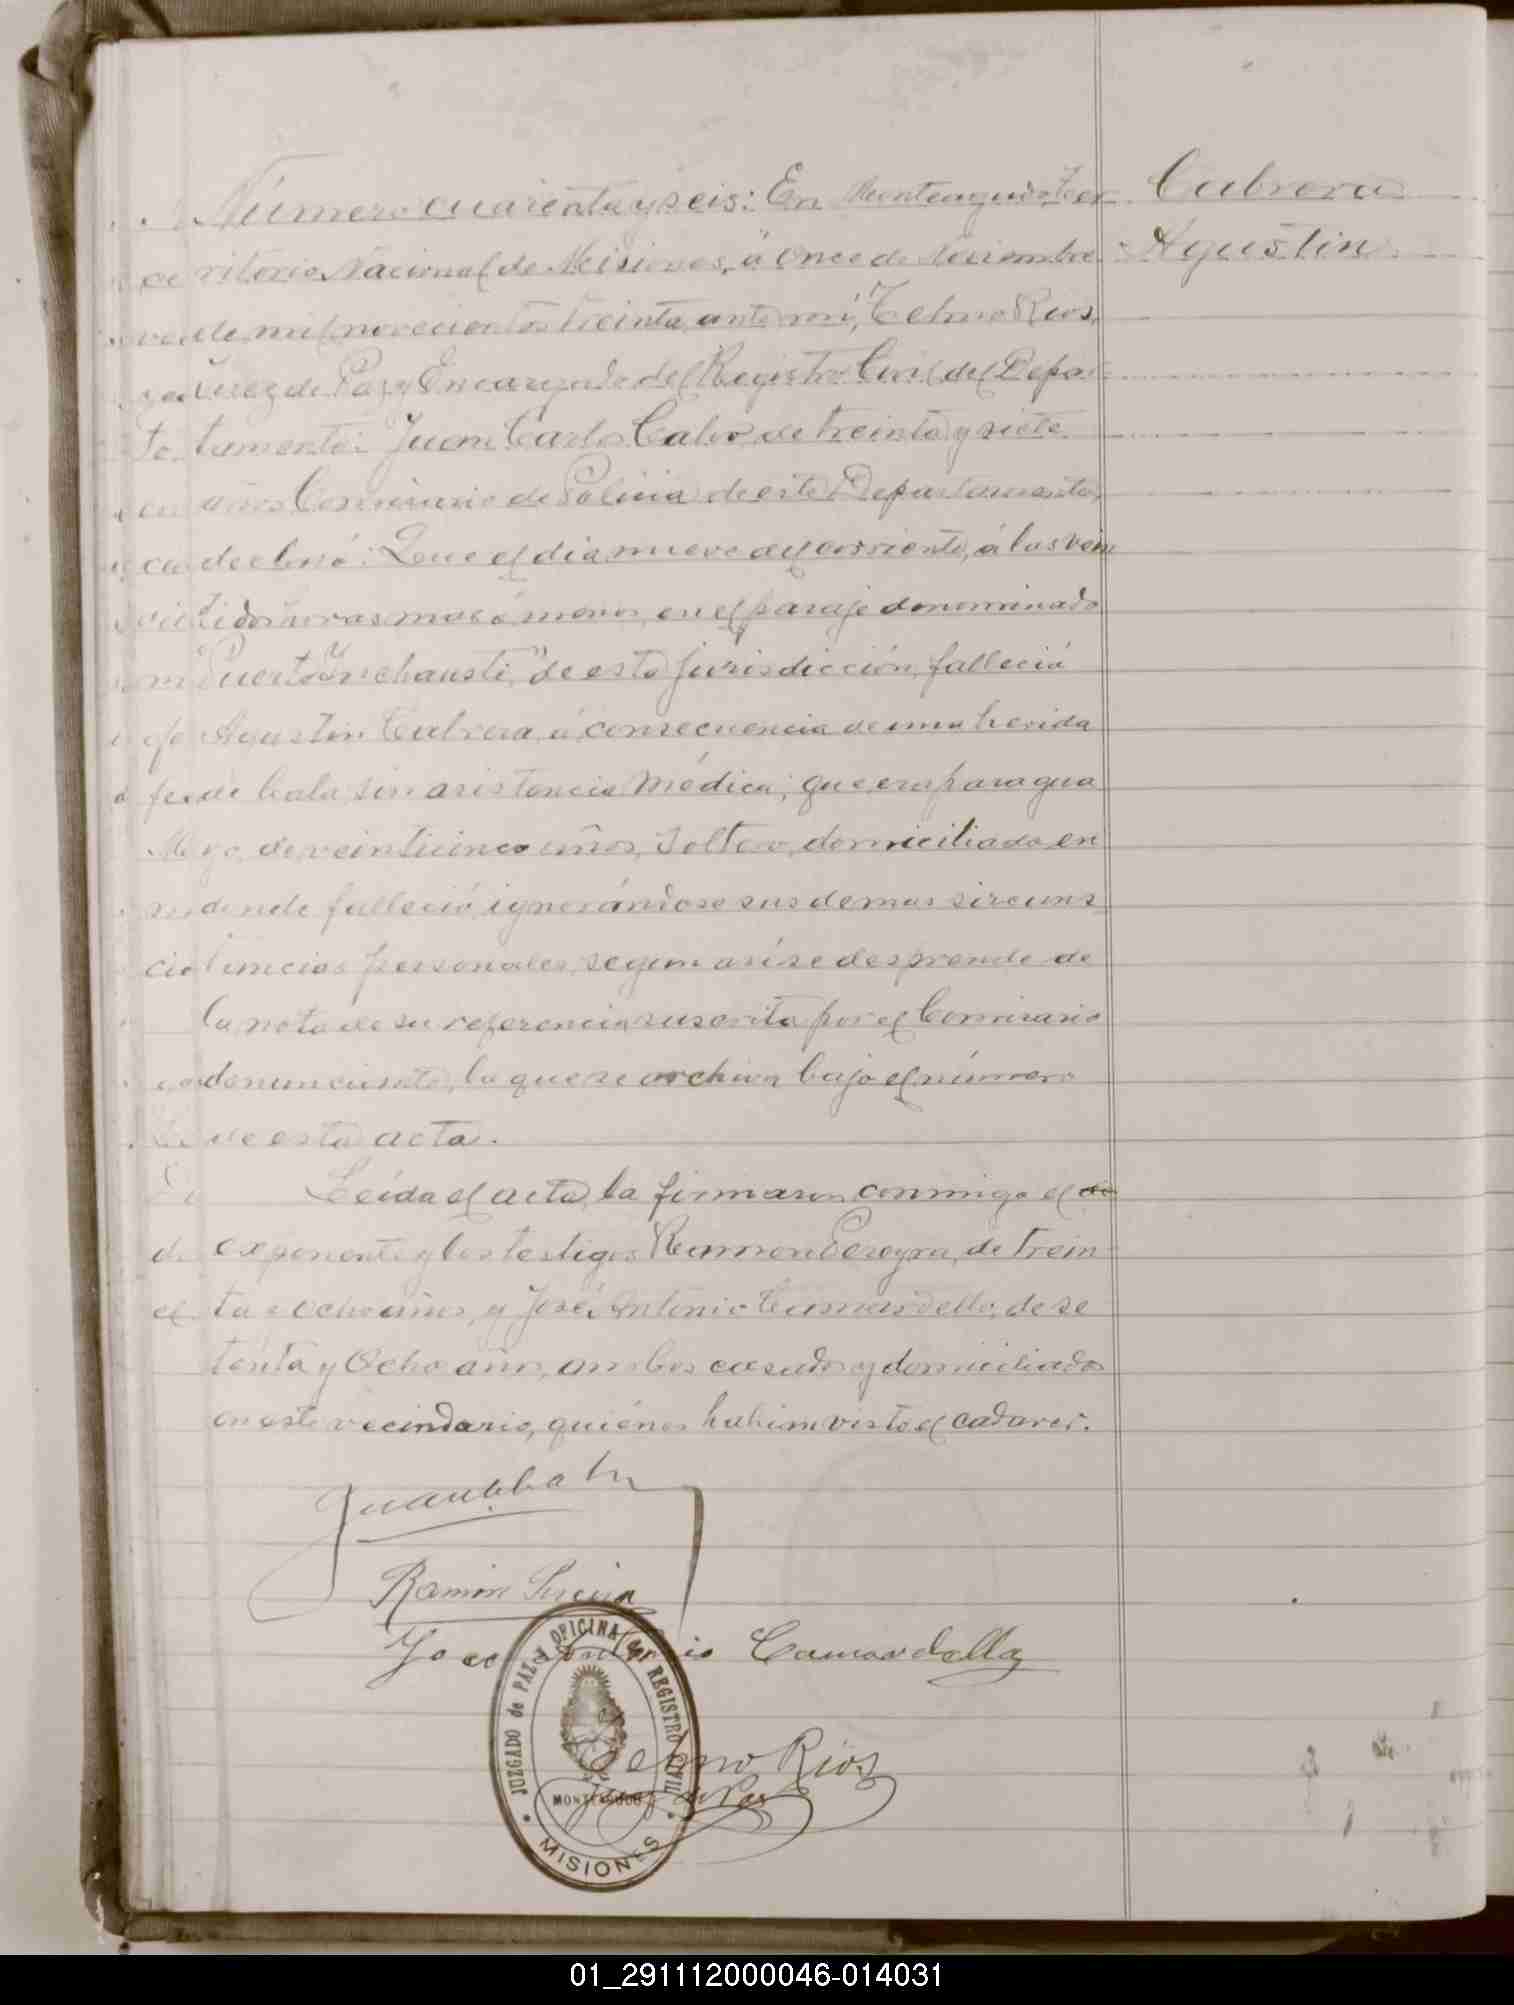 Número cuarenta y seis: En Monteagudo, Ter
ritorio Nacional de Misiones, á Once de Noviembre
de mil novecientos treinta, ante mí, Telmo Rios,
Juez de Paz y Encargado del Registro Civil del Depar
tamento: Juan Carlos Calvo de treinta y siete
años Comisario de Policia de este Departamento,
declaró: Que el dia nueve del corriente, á las vein
tidos horas mas ó menos, en el paraje denominado
"Puerto Inchausti," de esta jurisdicción, falleció
Agustin Cabrera, á consecuencia de una herida
de bala, sin asistencia Médica; que era paragua
yo, de veinticinco años, Soltero, domiciliado en
donde falleció, ignorándose sus demas sircuns
tancias personales, segun así se desprende de
la nota de su referencia suscrita por el Comisario
denunciante, la que se archiva bajo el número
de esta acta.
Leída el acta, la firmaron conmigo el
exponente y los testigos Ramon Pereyra, de trein
ta y ocho años, y José Antonio Camardello, de se
tenta y Ocho años, ambos casados y domiciliados
en este vecindario, quiénes habian visto el cadaver.
Cabrera
Agustin
Ramón Pereira
Jose Antonio Camardella
Telmo Rios
Juez de Paz
JUZGADO de PAZ y OFICINA del REGISTRO CIVIL
MONTEAGUDO
MISIONES
01_291112000046-014031